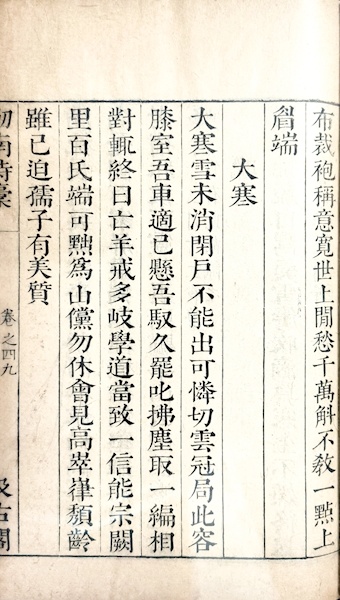 布裁袍稱意寬世上閒愁千萬斛不敎一點上
眉端
大寒
大寒雪未消閉戶不能出可憐切雲冠局此容
膝室吾車適已懸吾馭久罷叱拂塵取一編相
對輒終日亡羊戒多岐學道當致一信能宗闕
里百氏端可黜爲山儻勿休會見高崒嵂頹齡
雖已迫孺子有美質
劍南詩稾
卷之四九
汲古閣